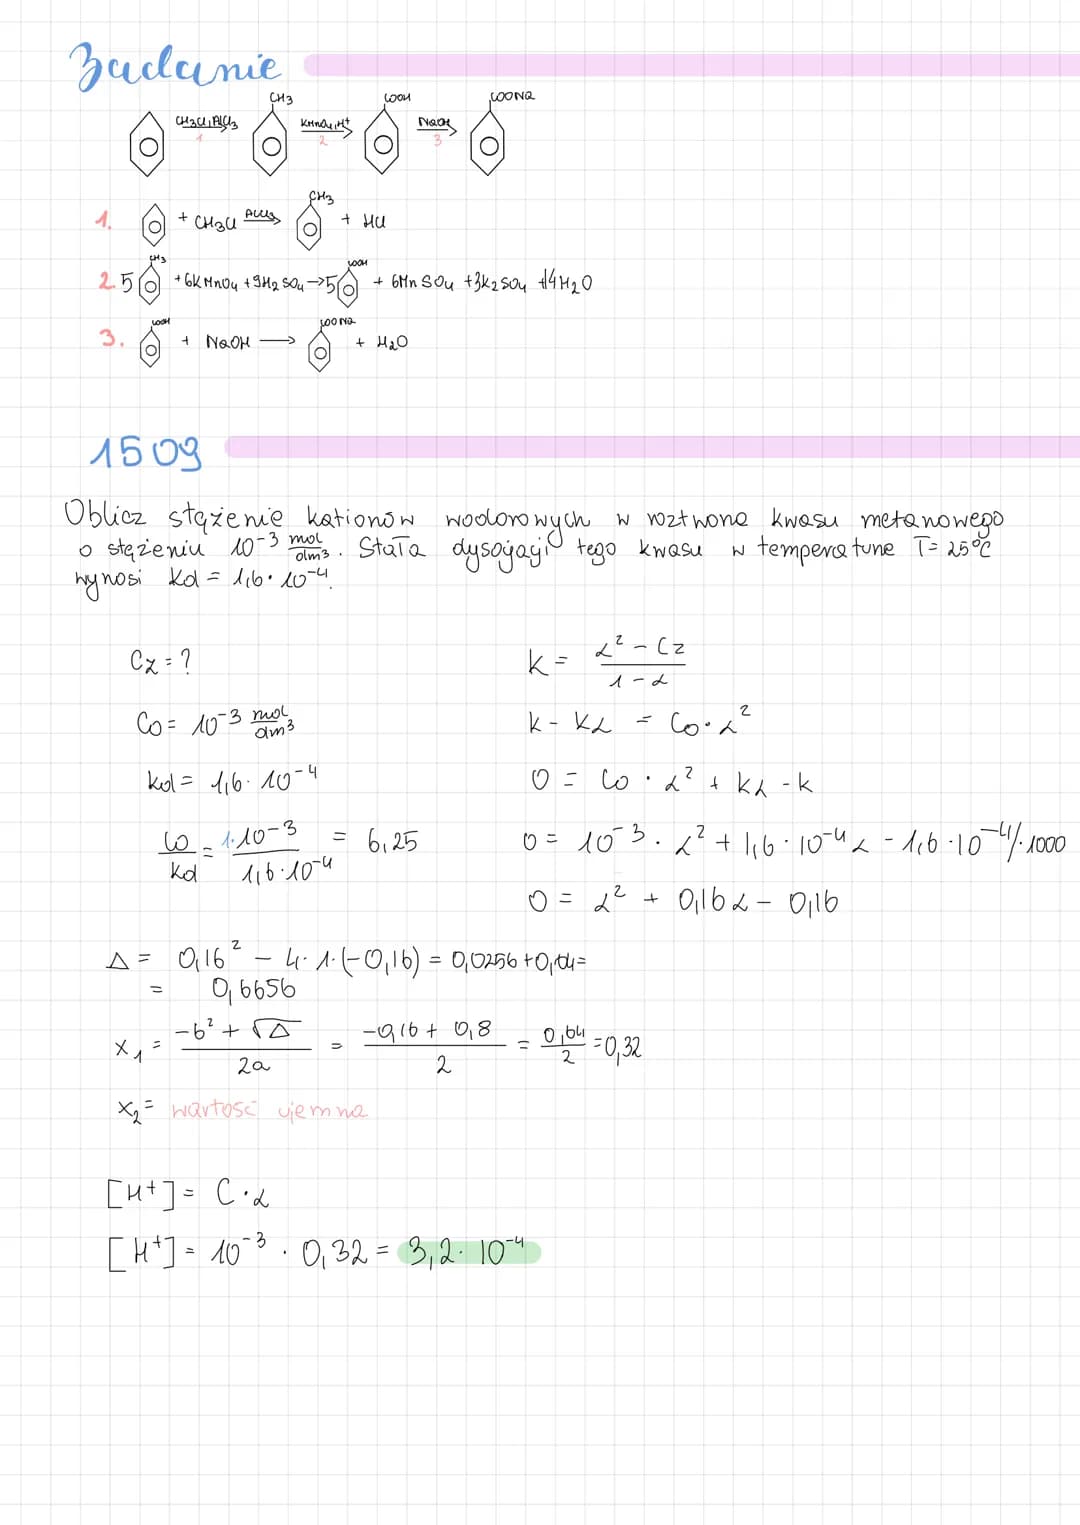 Zadanie
CH3 COOH COONa
CH3Cl, AlCl3 KMnO4, H+ NaOH
1 2 3
1. + CH3Cl AlCl3 CH3 + HCl
2. 5 CH3 + 6KMnO4 + 9H2SO4 → 5 COOH + 6MnSO4 + 3K2SO4 + 14H2O
3. COOH + NaOH → COONa + H2O
1509
Oblicz stężenie kationów wodorowych w roztworze kwasu metanowego
o stężeniu 10^-3 mol/dm3. Stała dysocjacji tego kwasu w temperaturze T= 25°C
wynosi Kd = 1,6·10^-4.
Cz = ?
K = α² - Cz / 1 - α
C0 = 10^-3 mol/dm3
K - Kα = C0·α²
Kd = 1,6·10^-4
0 = C0·α² + Kα - K
C0/Kd = 1·10^-3 / 1,6·10^-4 = 6,25
0 = 10^-3·α² + 1,6·10^-4 α - 1,6·10^-4 /·1000
0 = α² + 0,16α - 0,16
Δ = 0,16² - 4·1·(-0,16) = 0,0256 + 0,64 =
= 0,6656
x1 = -b² + √Δ / 2a = -0,16 + 0,8 / 2 = 0,64 / 2 = 0,32
x2 = wartość ujemna
[H+] = C·α
[H+] = 10^-3 · 0,32 = 3,2·10^-4